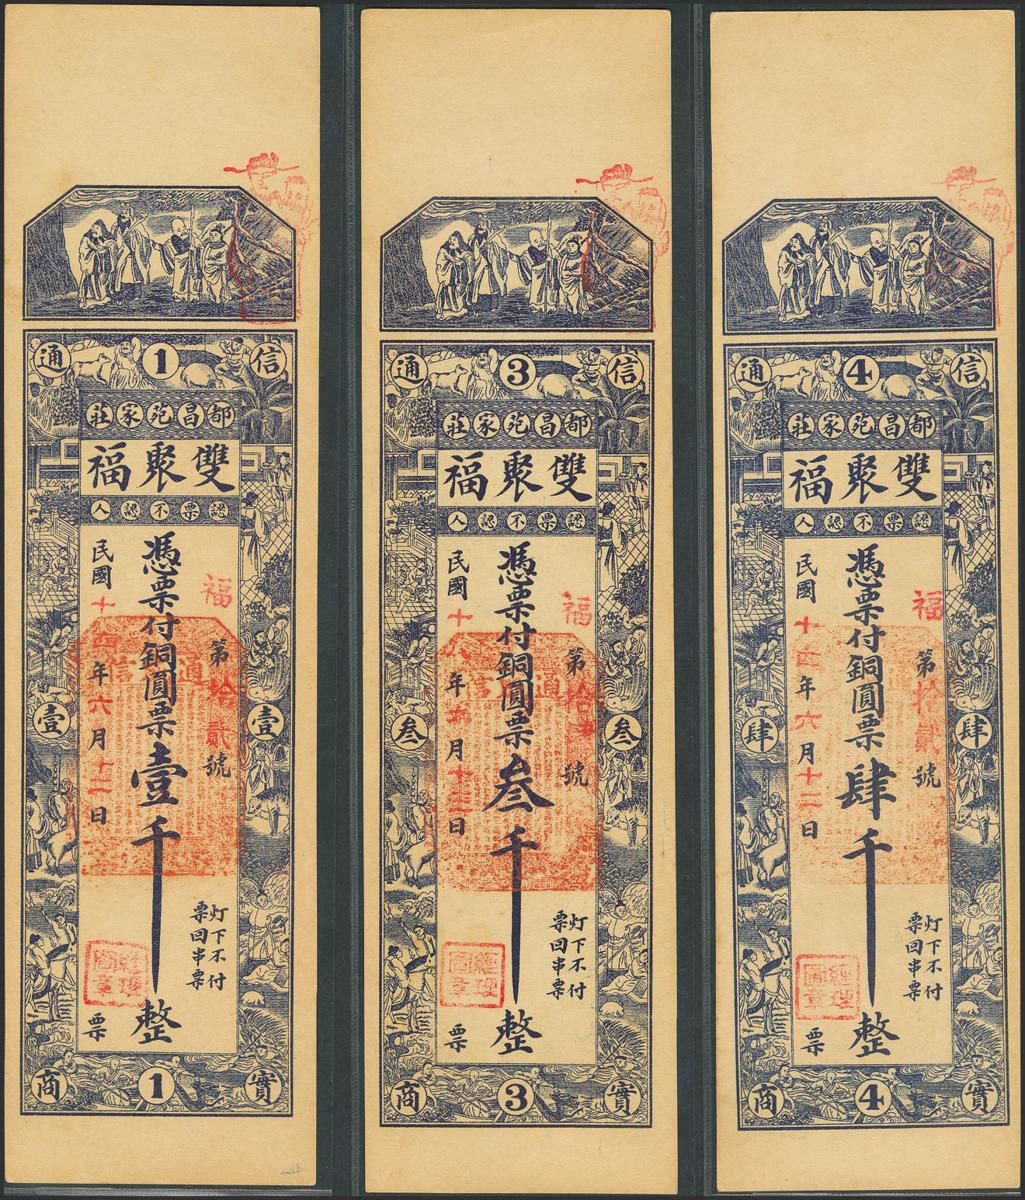 通 1 信
都昌范家莊
雙聚福
認票不認人
憑票付銅圓票壹千整
福
第拾貳號
民國十四年六月十二日
通信
壹 壹
灯下不付
票回串票
經理圖章
票
商 1 實
通 3 信
都昌范家莊
雙聚福
認票不認人
憑票付銅圓票叁千整
福
第拾 號
民國十 年六月十二日
通信
叁 叁
灯下不付
票回串票
經理圖章
票
商 3 實
通 4 信
都昌范家莊
雙聚福
認票不認人
憑票付銅圓票肆千整
福
第拾貳號
民國十四年六月十二日
肆 肆
灯下不付
票回串票
經理圖章
票
商 4 實